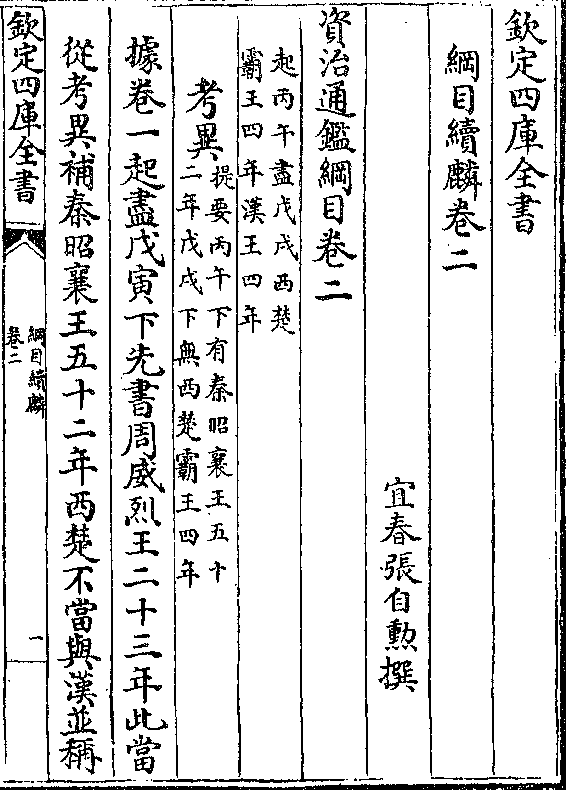 欽定四庫全書
綱目續麟卷二
宜春張自勲撰
資治通鑑綱目卷二
起丙午盡戊戌西楚
霸王四年漢王四年
考異提要丙午下有秦昭襄王五十
二年戊戌下無西楚霸王四年
據卷一起盡戊寅下先書周威烈王二十三年此當
從考異補秦昭襄王五十二年西楚不當與漢並稱
欽定四庫全書
綱目續麟
卷二
一